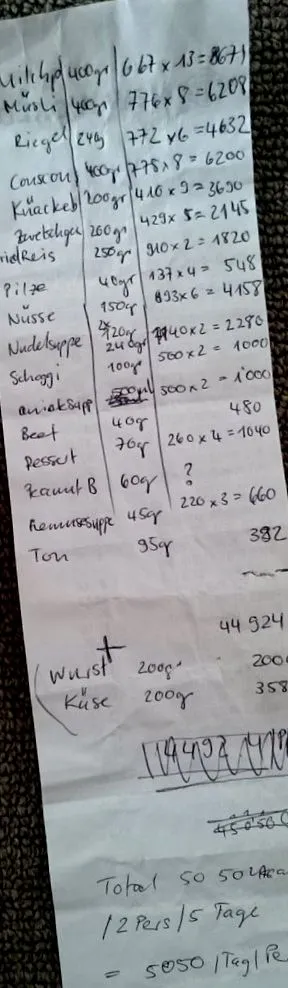 Milchp 400gr 667 x 13 = 8671
Müsli 400gr 776 x 8 = 6208
Riegel 240g 772 x 6 = 4632
Couscou 400gr 775 x 8 = 6200
Knäckeb 200gr 410 x 9 = 3690
200gr 429 x 5 = 2145
Reis 250gr 910 x 2 = 1820
Pilze 40gr 137 x 4 = 548
Nüsse 150gr 693 x 6 = 4158
Nudelsuppe 2x 120gr 240gr 1140 x 2 = 2280
Schoggi 100gr 500 x 2 = 1000
500ml 500 x 2 = 1'000
Beef 40gr 480
Dessert 70gr 260 x 4 = 1040
B 60gr ?
45gr 220 x 3 = 660
Ton 95gr 382
44 924
+
Wurst 200gr 200
Käse 200gr 358
45050
Total 50 50
/2 Pers/5 Tage
= 5050 /Tag/Pe